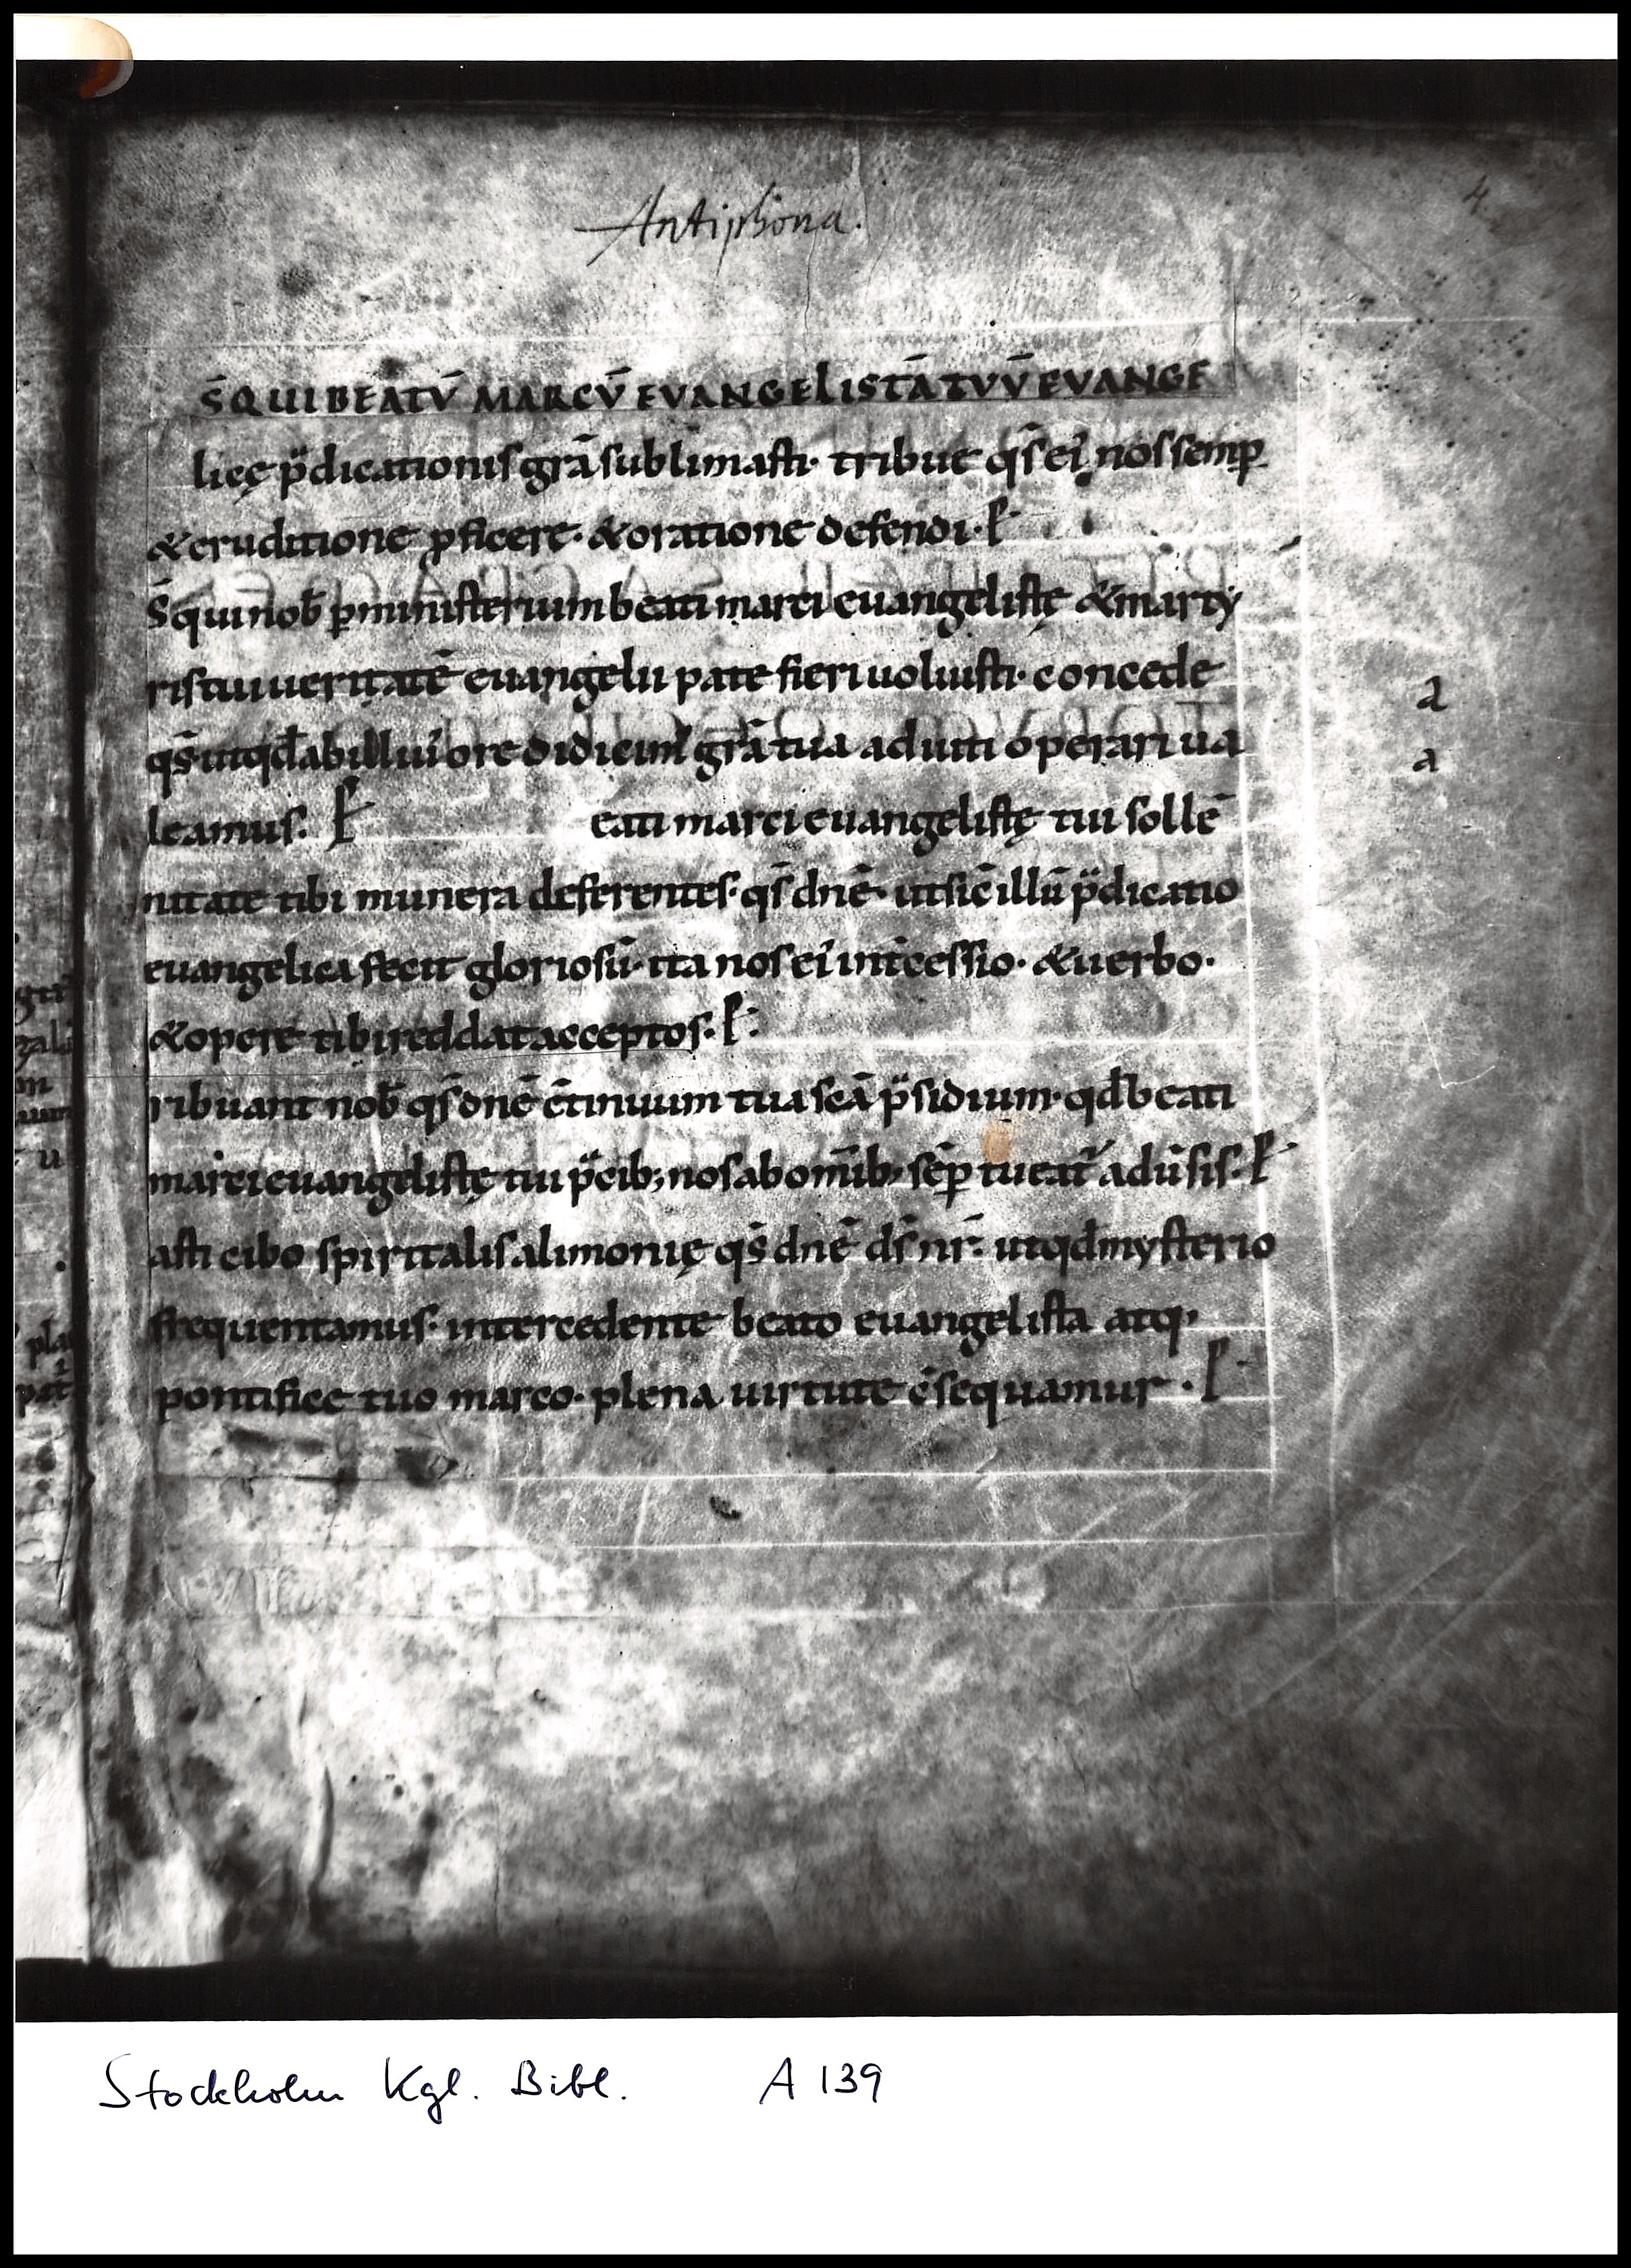 4.
Antiphona.
S̄ QUI BEATV̄ MARCV̄ EVANGELISTĀ TVV̄ EVANGE
licę p̈dicationis grā sublimasti· tribue qs̄ ei᷒ nos semꝑ
& eruditione ꝓficere· & oratione defendi· P
S̄ qui nob̄ ꝑ ministerium beati marci euangelistę & marty
ris tui ueritatē euangelii pate fieri uoluisti· concede
qs̄· ut qd̄ ab illiu᷒ ore didicim᷒ grā tua adiuti operari ua
leamus. P eati marci euangelistę tui sollē
nitate tibi munera deferentes· qs̄ dnē· ut sic̄ illū p̈dicatio
euangelica fecit gloriosū· ita nos ei᷒ int̄cessio· & uerbo·
& opere tibi reddat acceptos· P
ribuant nob̄ qs̄ dnē c̄tinuum tua scā p̈sidium· qd̄ beati
marci euangelistę tui p̈cib; nos ab om̄ib; sēꝑ tueat᷑ adūsis· P
asti cibo spiritalis alimonię qs̄ dnē ds̄ nr̄· ut qd̄ mysterio
frequentamus· intercedente beato euangelista atq;
pontifice tuo marco· plena uirtute c̄sequamur· P
a
a
Stockholm Kgl. Bibl. A 139